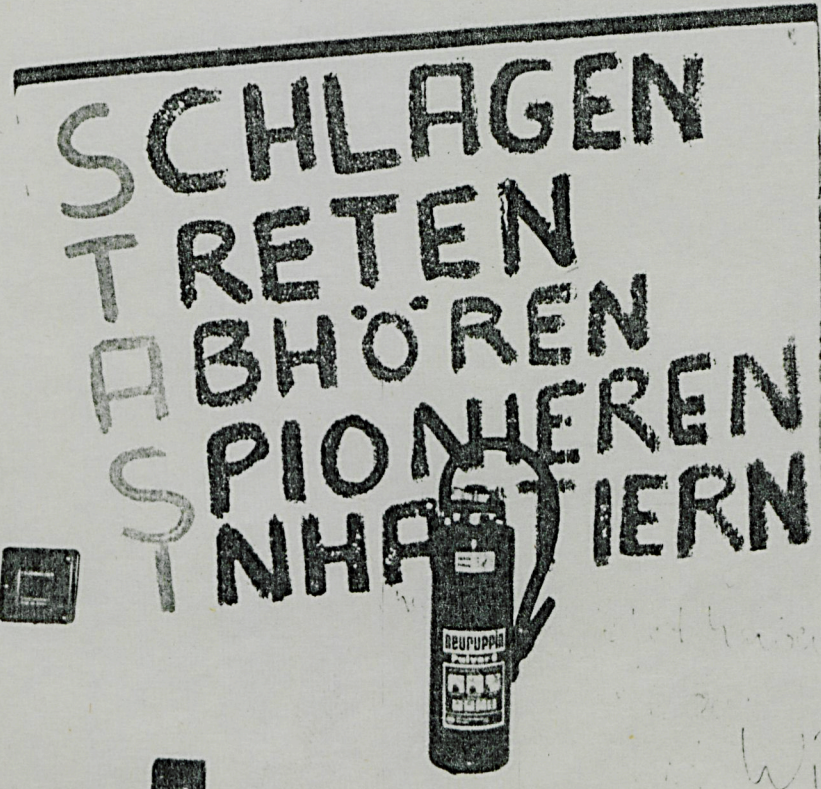 SCHLAGEN
TRETEN
ABHÖREN
SPIONIEREN
INHAFTIERN
NEURUPPIN
Pulver 6